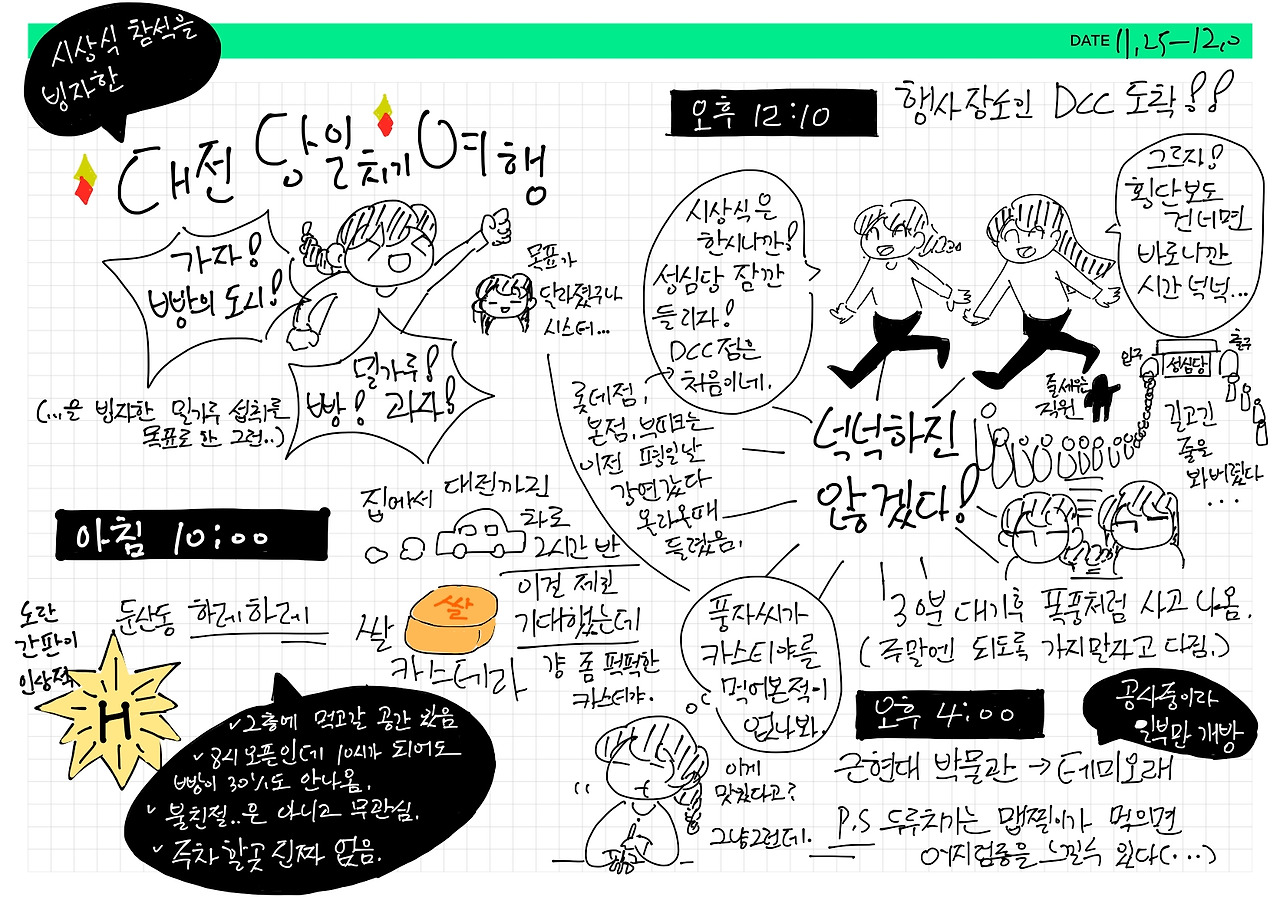 DATE 11.25-12.0
시상식 참석을
빙자한
대전 당일치기 여행
가자!
빵의 도시!
밀가루!
빵! 과자!
목표가
달라졌구나
시스터...
(...을 빙자한 밀가루 섭취를
목표로 한 그런..)
아침 10:00
집에서 대전까진
차로
2시간 반
둔산동 하레하레
노란
간판이
인상적
H
쌀
쌀
카스테라
이걸 제일
기대했는데
걍 좀 퍽퍽한
카스테라.
✓2층에 먹고갈 공간 있음
✓8시 오픈인데 10시가 되어도
빵이 30%도 안나옴.
✓불친절..은 아니고 무관심.
✓주차할곳 진짜 없음.
오후 12:10
행사장소인 DCC 도착!!
시상식은
한시니깐!
성심당 잠깐
들리자!
DCC점은
처음이네.
그르자!
횡단보도
건너면
바로니깐
시간 넉넉...
롯데점,
본점, 부띠크는
이전 평일날
강연갔다
올라올때
들렸음.
넉넉하진
않겠다!
입구
성심당
출구
줄세우는
직원
길고긴
줄을
봐버렸다
...
30분 대기후 폭풍처럼 사고 나옴.
(주말엔 되도록 가지말자고 다짐.)
풍자씨가
카스테라를
먹어본적이
없나봐.
이게
맛있다고?
그냥그런데.
오후 4:00
공사중이라
일부만 개방
근현대 박물관 → 테미오래
P.S 두루치기는 맵찔이가 먹으면
어지럼증을 느낄수 있다(...)